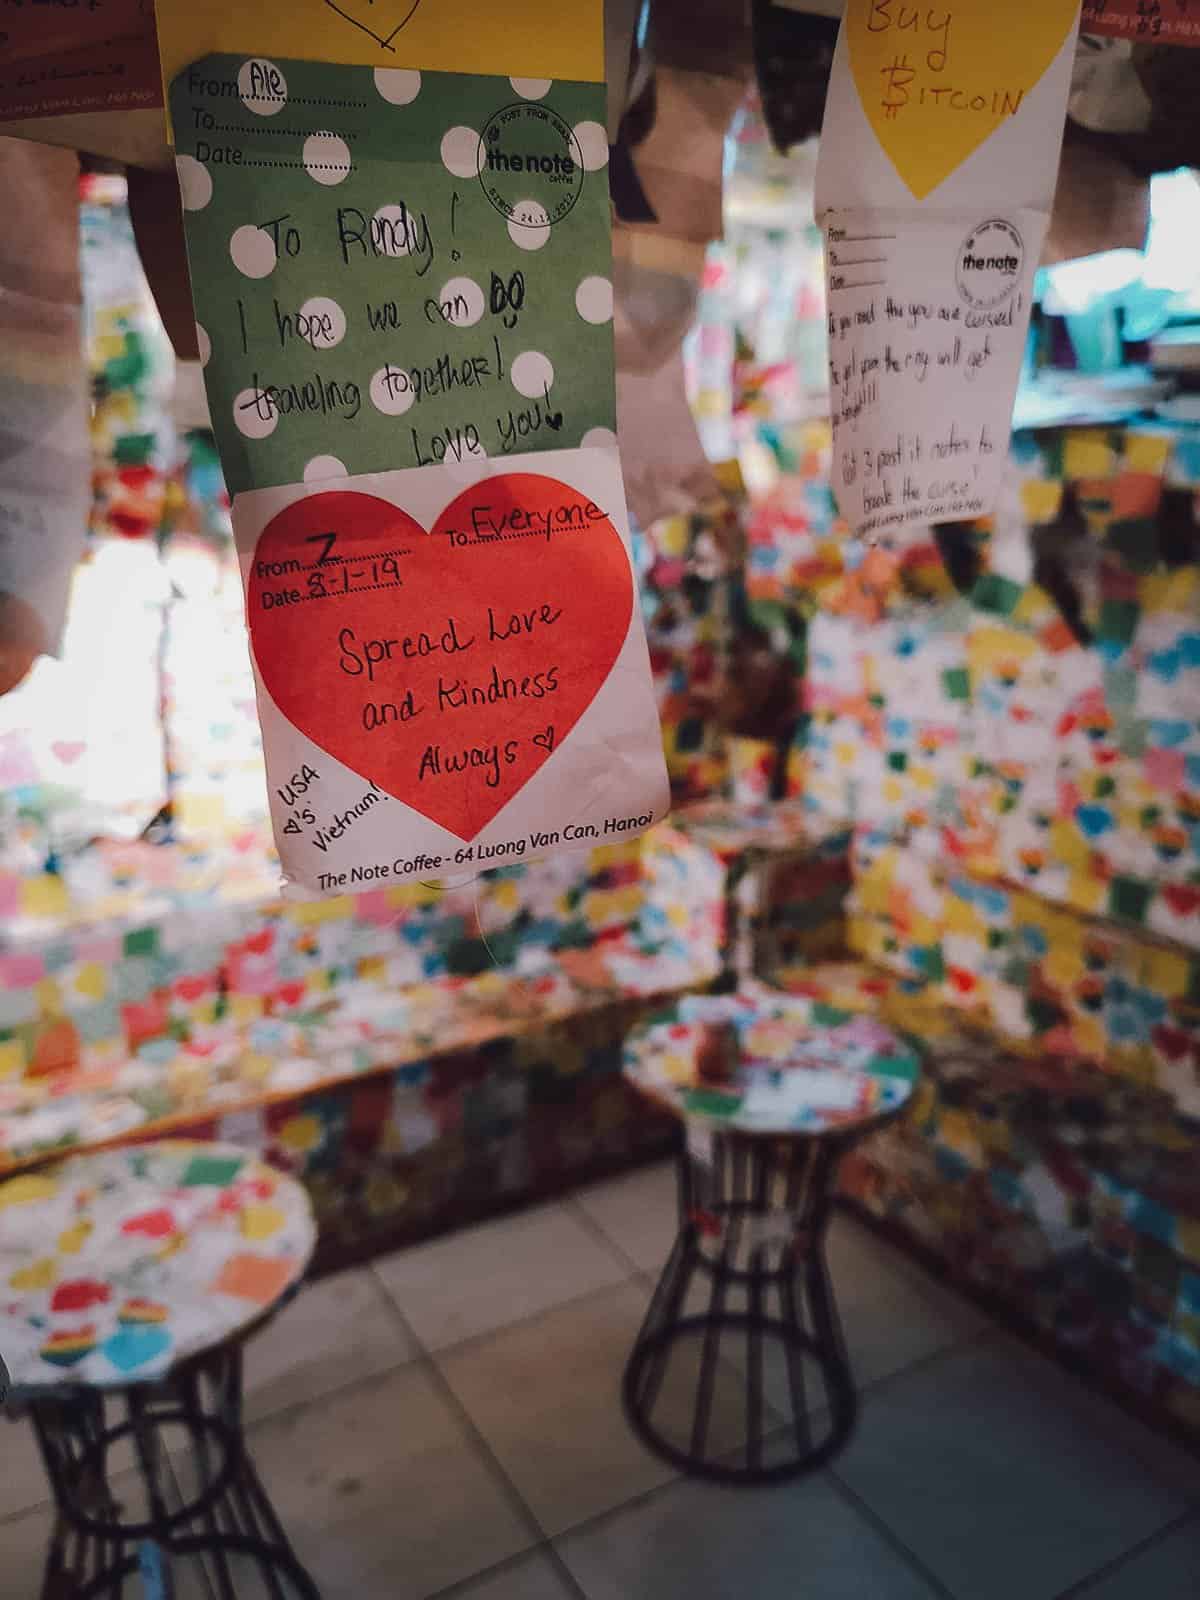 From Ale
To
Date
POST FROM
the note
coffee
SINCE 24.12.2012
To Rendy!
I hope we can DO
traveling together!
Love you!
From Z To Everyone
Date 8-1-19
Spread Love
and Kindness
Always
USA
♡'s
Vietnam!
The Note Coffee - 64 Luong Van Can, Hanoi
BUY
BITCOIN
From
To
Date
the note
coffee
If you read this you are cursed!
will get
3 post it notes to
break the curse!
Luong Van Can, Ha Noi